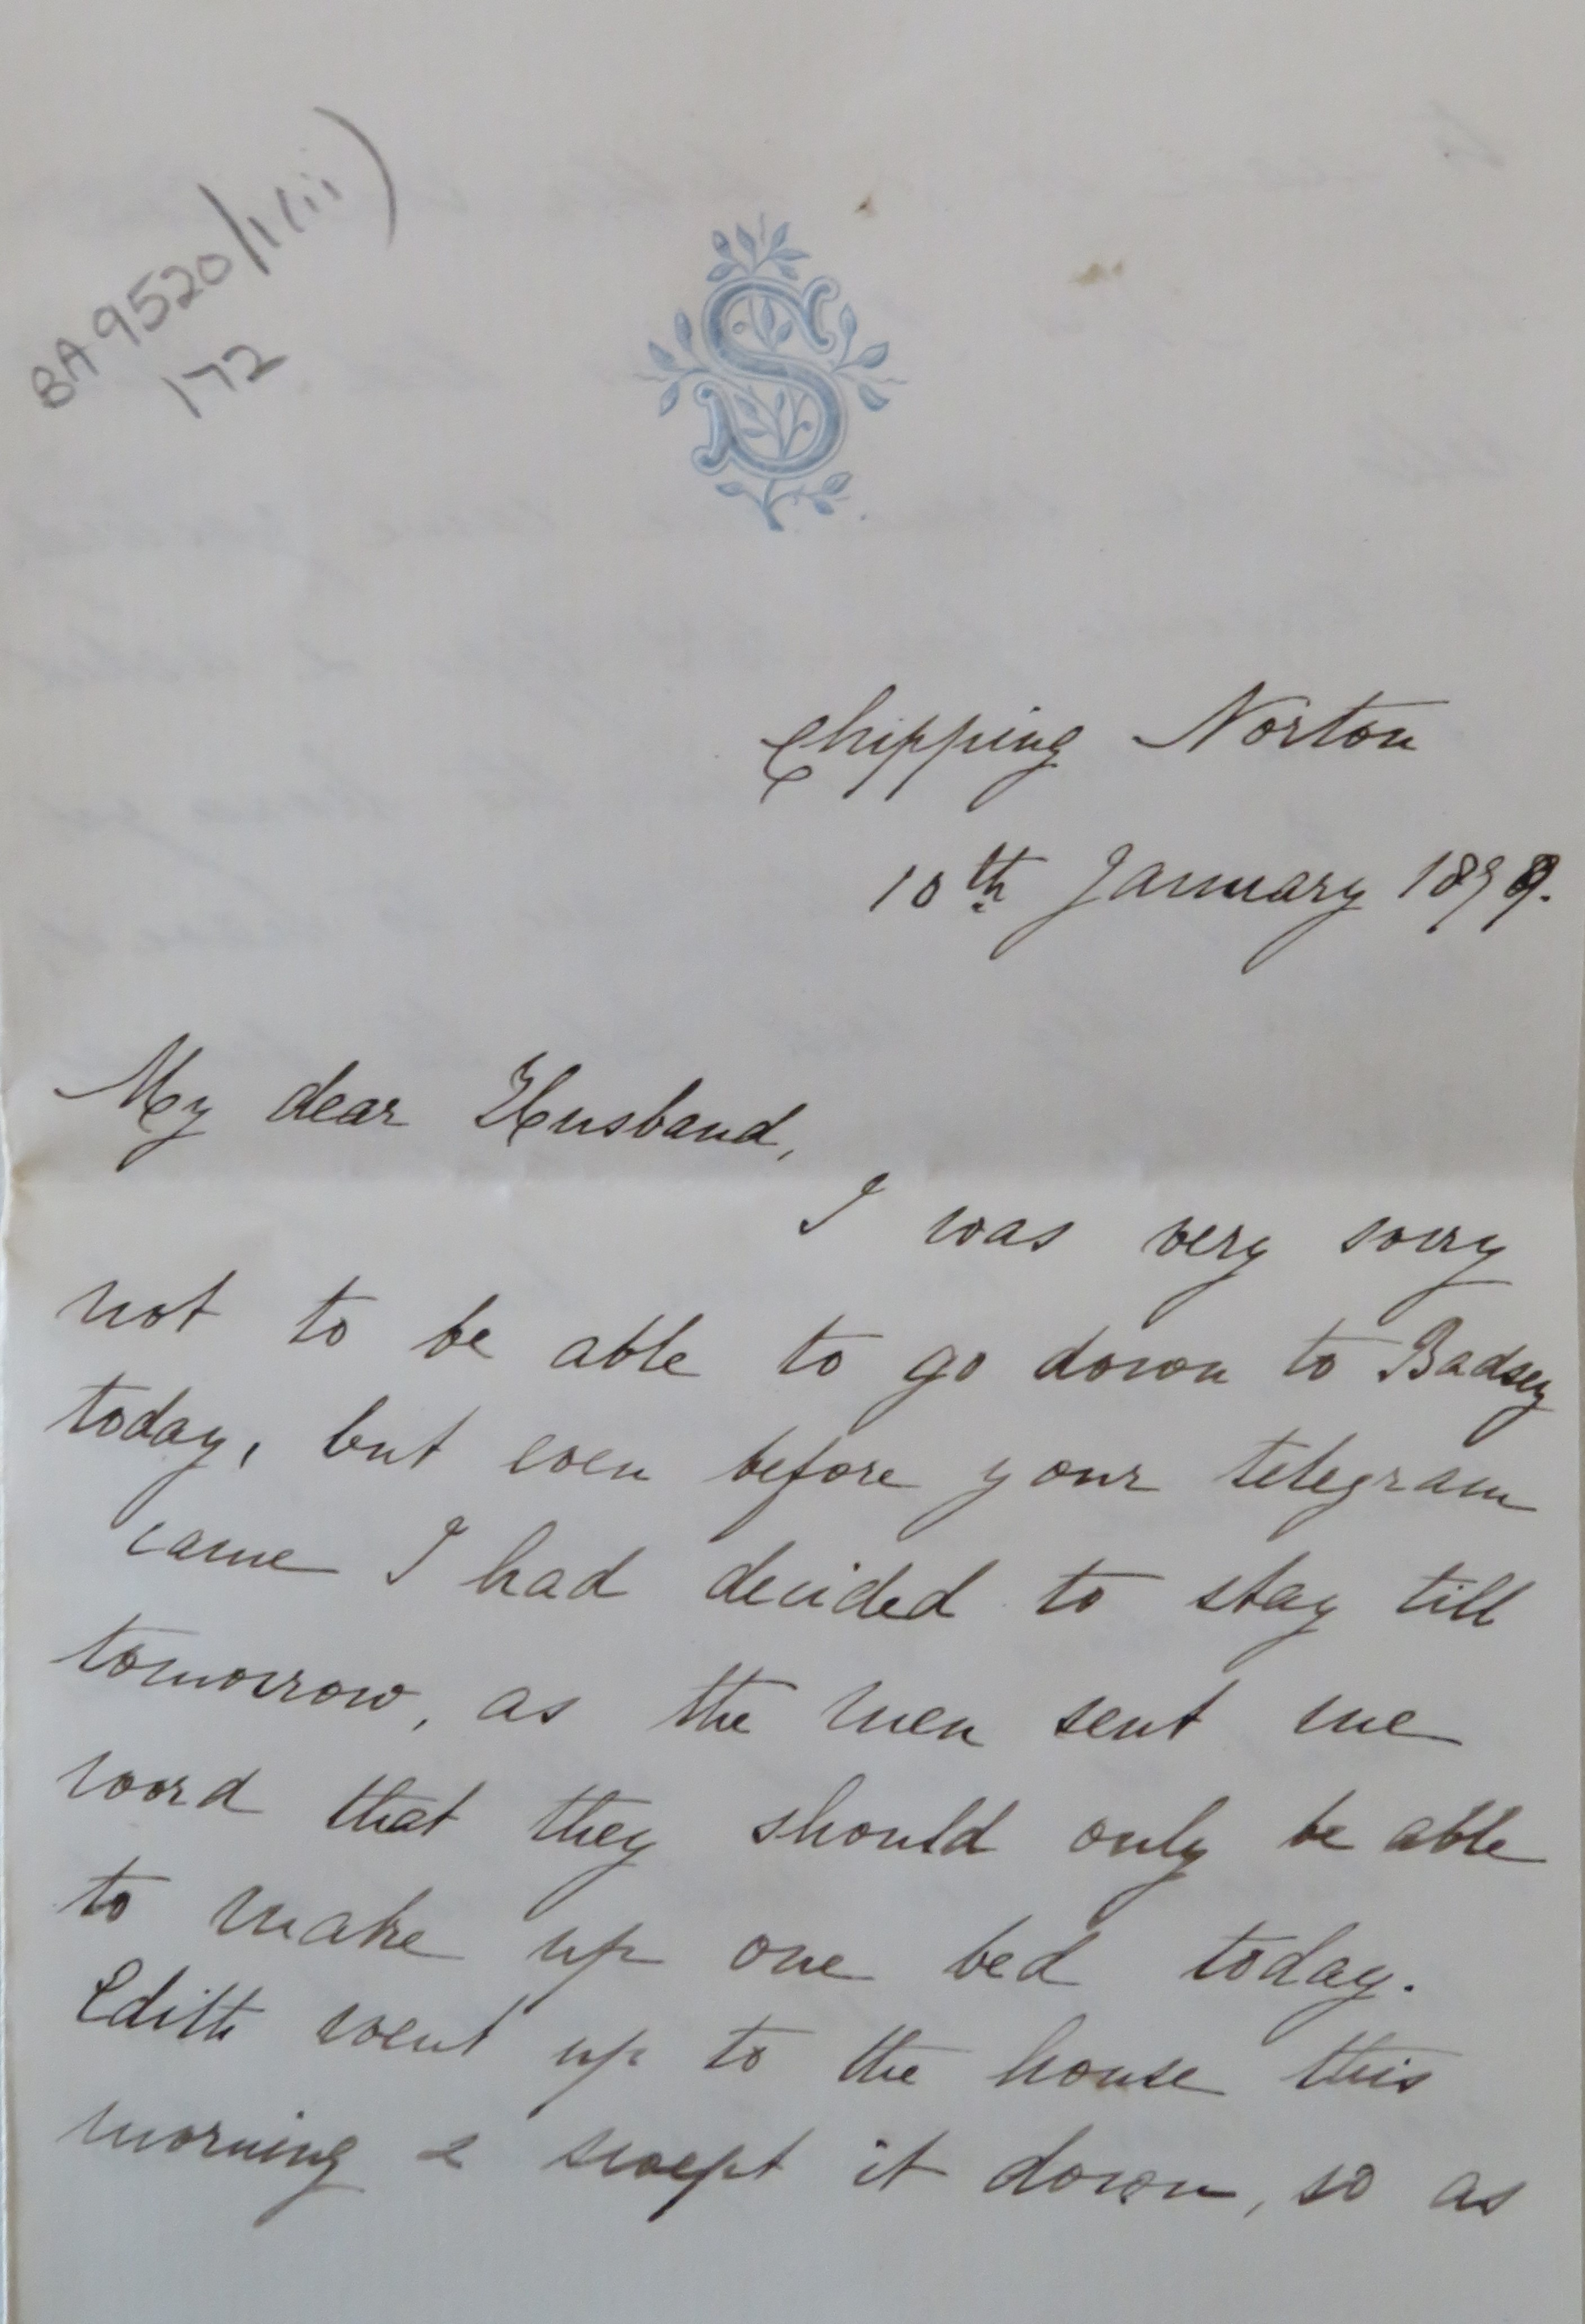 BA 9520/1(ii)
172
S
Chipping Norton
10th January 1899.
My dear Husband,
I was very sorry
not to be able to go down to Badsey
today, but even before your telegram
came I had decided to stay till
tomorrow, as the men sent me
word that they should only be able
to make up one bed today.
Edith went up to the house this
morning & swept it down, so as